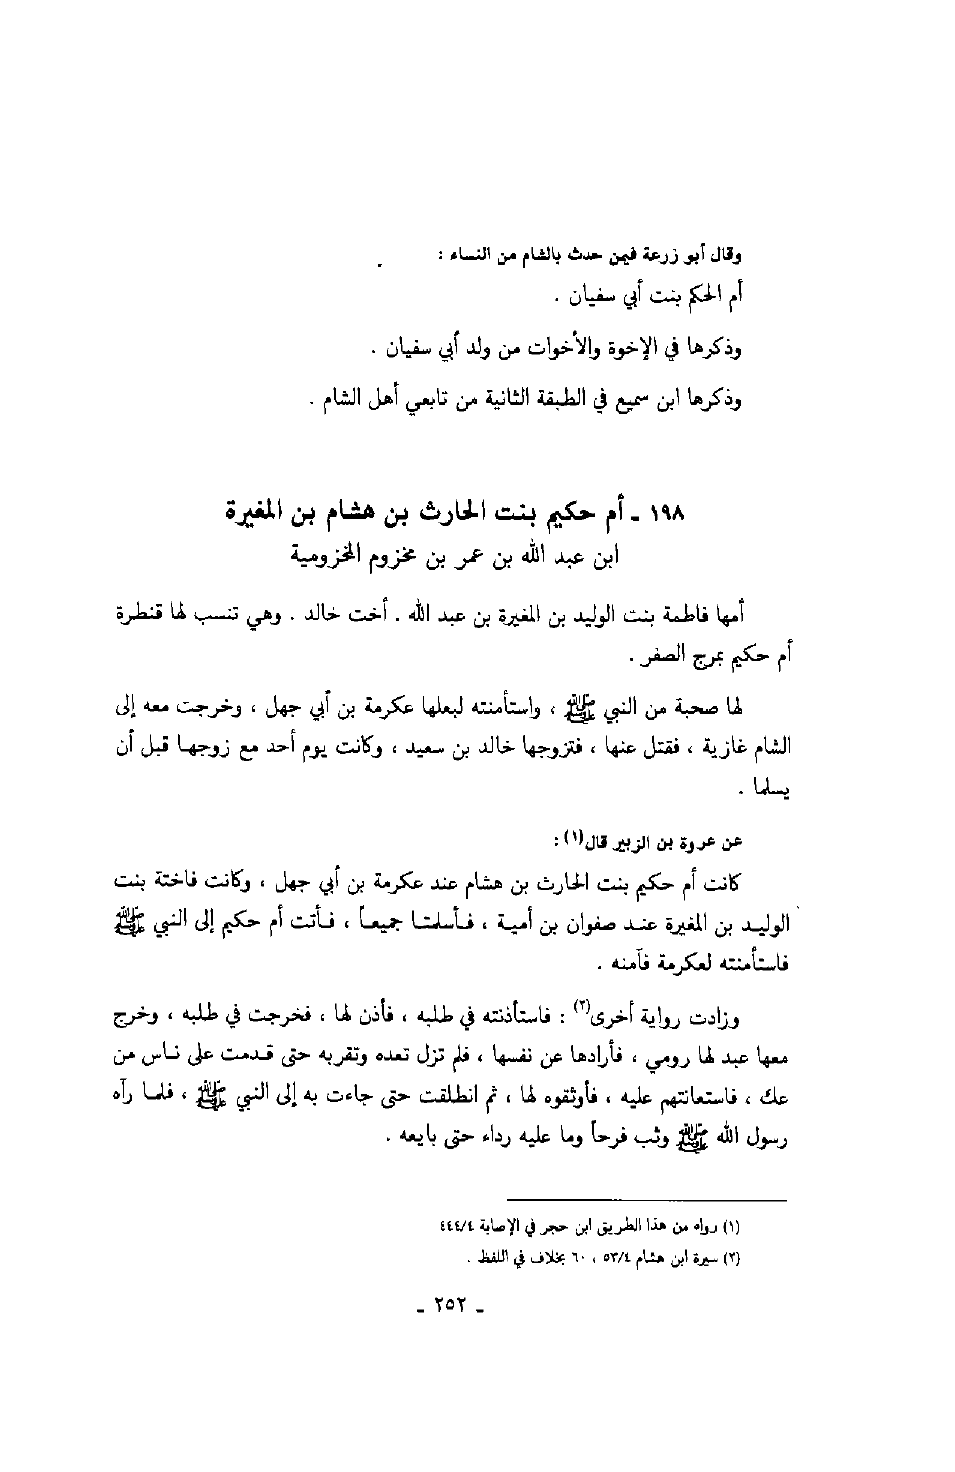 وقال أبو زرعة فيمن حدث بالشام من النساء :
أم الحكم بنت أبي سفيان .
وذكرها في الإخوة والأخوات من ولد أبي سفيان .
وذكرها ابن سميع في الطبقة الثانية من تابعي أهل الشام .
١٩٨ ـ أم حكيم بنت الحارث بن هشام بن المغيرة
ابن عبد الله بن عمر بن مخزوم المخزومية
أمها فاطمة بنت الوليد بن المغيرة بن عبد الله . أخت خالد . وهي تنسب لها قنطرة
أم حكيم بمرج الصفر .
لها صحبة من النبي ﷺ ، واستأمنته لبعلها عكرمة بن أبي جهل ، وخرجت معه إلى
الشام غازية ، فقتل عنها ، فتزوجها خالد بن سعيد ، وكانت يوم أحد مع زوجها قبل أن
يسلما .
عن عروة بن الزبير قال(١) :
كانت أم حكيم بنت الحارث بن هشام عند عكرمة بن أبي جهل ، وكانت فاختة بنت
الوليد بن المغيرة عند صفوان بن أمية ، فأسلمتا جميعاً ، فأتت أم حكيم إلى النبي ﷺ
فاستأمنته لعكرمة فآمنه .
وزادت رواية أخرى(٢) : فاستأذنته في طلبه ، فأذن لها ، فخرجت في طلبه ، وخرج
معها عبد لها رومي ، فأرادها عن نفسها ، فلم تزل تعده وتقربه حتى قدمت على ناس من
عك ، فاستعانتهم عليه ، فأوثقوه لها ، ثم انطلقت حتى جاءت به إلى النبي ﷺ ، فلما رآه
رسول الله ﷺ وثب فرحاً وما عليه رداء حتى بايعه .
(١) رواه من هذا الطريق ابن حجر في الإصابة ٤٤٤/٤
(٢) سيرة ابن هشام ٥٣/٤ ، ٦٠ بخلاف في اللفظ .
ـ ٢٥٢ ـ